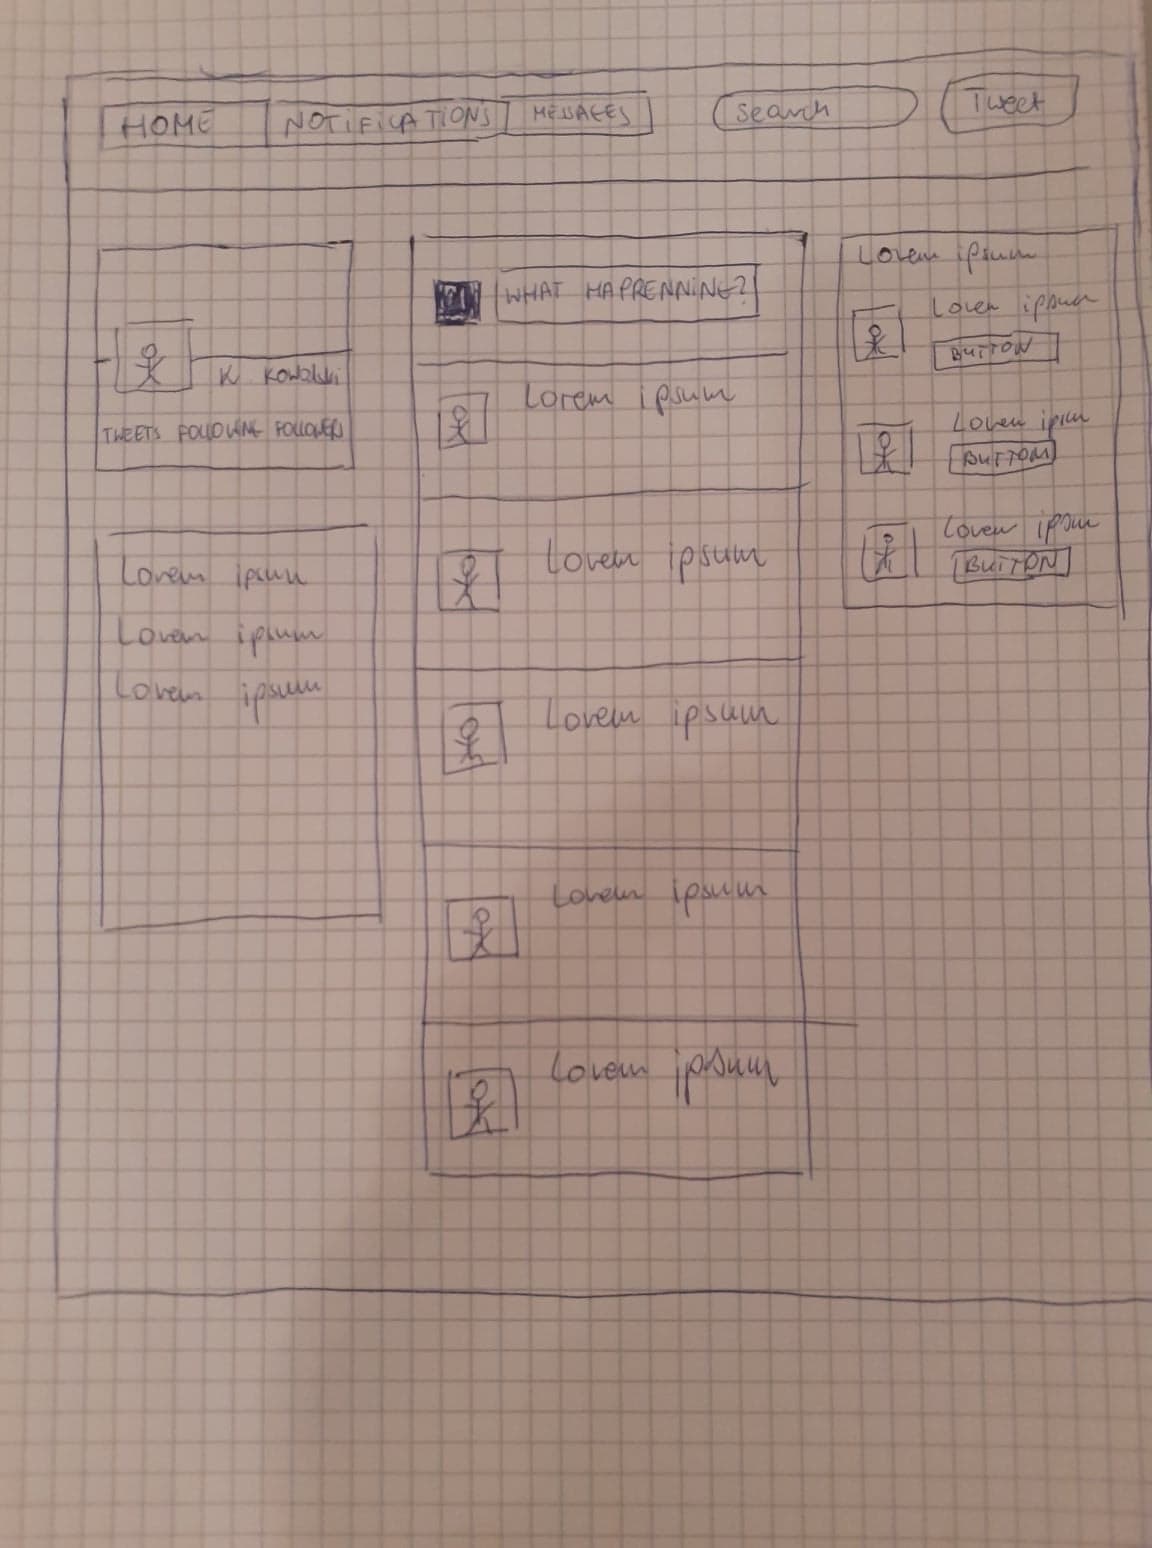 HOME NOTIFICATIONS MESSAGES Search Tweet
K Kowalski
TWEETS FOLLOWING FOLLOWERS
Lorem ipsum
Lorem ipsum
Lorem ipsum
WHAT HAPRENNING?
Lorem ipsum
Lorem ipsum
Lorem ipsum
Lorem ipsum
Lorem ipsum
Lorem ipsum
Lorem ipsum
BUTTON
Lorem ipsum
BUTTON
Lorem ipsum
BUTTON